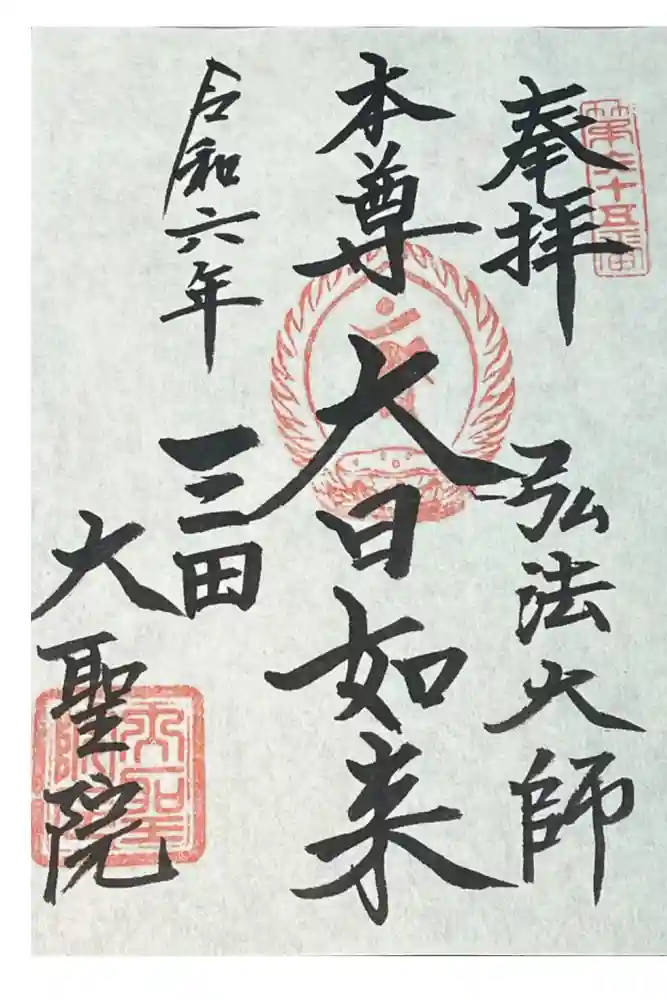 第六十五番
奉拝
弘法大師
本尊
大日如来
令和六年
三田
大聖院